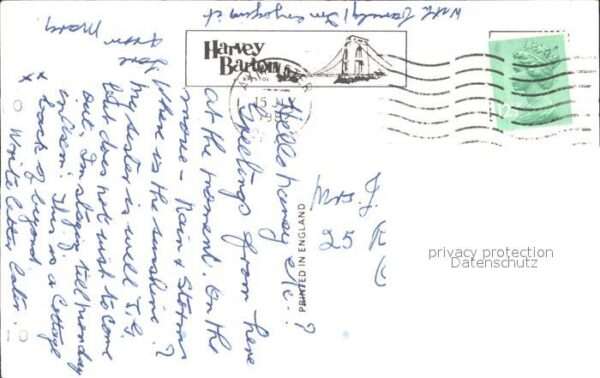 Harvey
Barton
BRISTOL
15
Hello Nancy etc -
Greetings from here
at the moment. On the
move - Rain & Storms
Where is the sunshine ?
My sister is well T.G.
but does not wish to come
out. I'm staying till Monday
This is a Cottage
back of beyond.
x Write letter later.
love
from
Mary
with family! I'm enjoying it
Mrs. J
25 R
PRINTED IN ENGLAND
privacy protection
Datenschutz